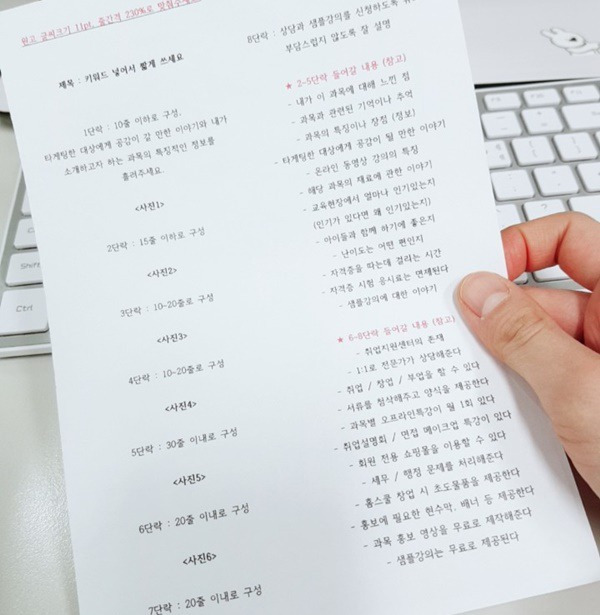 원고 글씨크기 11pt, 줄간격 230%로 맞춰주세요
제목 : 키워드 넣어서 짧게 쓰세요
1단락 : 10줄 이하로 구성,
타게팅한 대상에게 공감이 갈 만한 이야기와 내가
소개하고자 하는 과목의 특징적인 정보를
흘려주세요.
<사진1>
2단락 : 15줄 이하로 구성
<사진2>
3단락 : 10-20줄로 구성
<사진3>
4단락 : 10-20줄로 구성
<사진4>
5단락 : 30줄 이내로 구성
<사진5>
6단락 : 20줄 이내로 구성
<사진6>
7단락 : 20줄 이내로 구성
8단락 : 상담과 샘플강의를 신청하도록
부담스럽지 않도록 잘 설명
★ 2-5단락 들어갈 내용 (참고)
- 내가 이 과목에 대해 느낀 점
- 과목과 관련된 기억이나 추억
- 과목의 특징이나 장점 (정보)
- 타게팅한 대상에게 공감이 될 만한 이야기
- 온라인 동영상 강의의 특징
- 해당 과목의 재료에 관한 이야기
- 교육현장에서 얼마나 인기있는지
(인기가 있다면 왜 인기있는지)
- 아이들과 함께 하기에 좋은지
- 난이도는 어떤 편인지
- 자격증을 따는데 걸리는 시간
- 자격증 시험 응시료는 면제된다
- 샘플강의에 대한 이야기
★ 6-8단락 들어갈 내용 (참고)
- 취업지원센터의 존재
- 1:1로 전문가가 상담해준다
- 취업 / 창업 / 부업을 할 수 있다
- 서류를 첨삭해주고 양식을 제공한다
- 과목별 오프라인특강이 월 1회 있다
- 취업설명회 / 면접 메이크업 특강이 있다
- 회원 전용 쇼핑몰을 이용할 수 있다
- 세무 / 행정 문제를 처리해준다
- 홈스쿨 창업 시 초도물품을 제공한다
- 홍보에 필요한 현수막, 배너 등 제공한다
- 과목 홍보 영상을 무료로 제작해준다
- 샘플강의는 무료로 제공된다
Ctrl